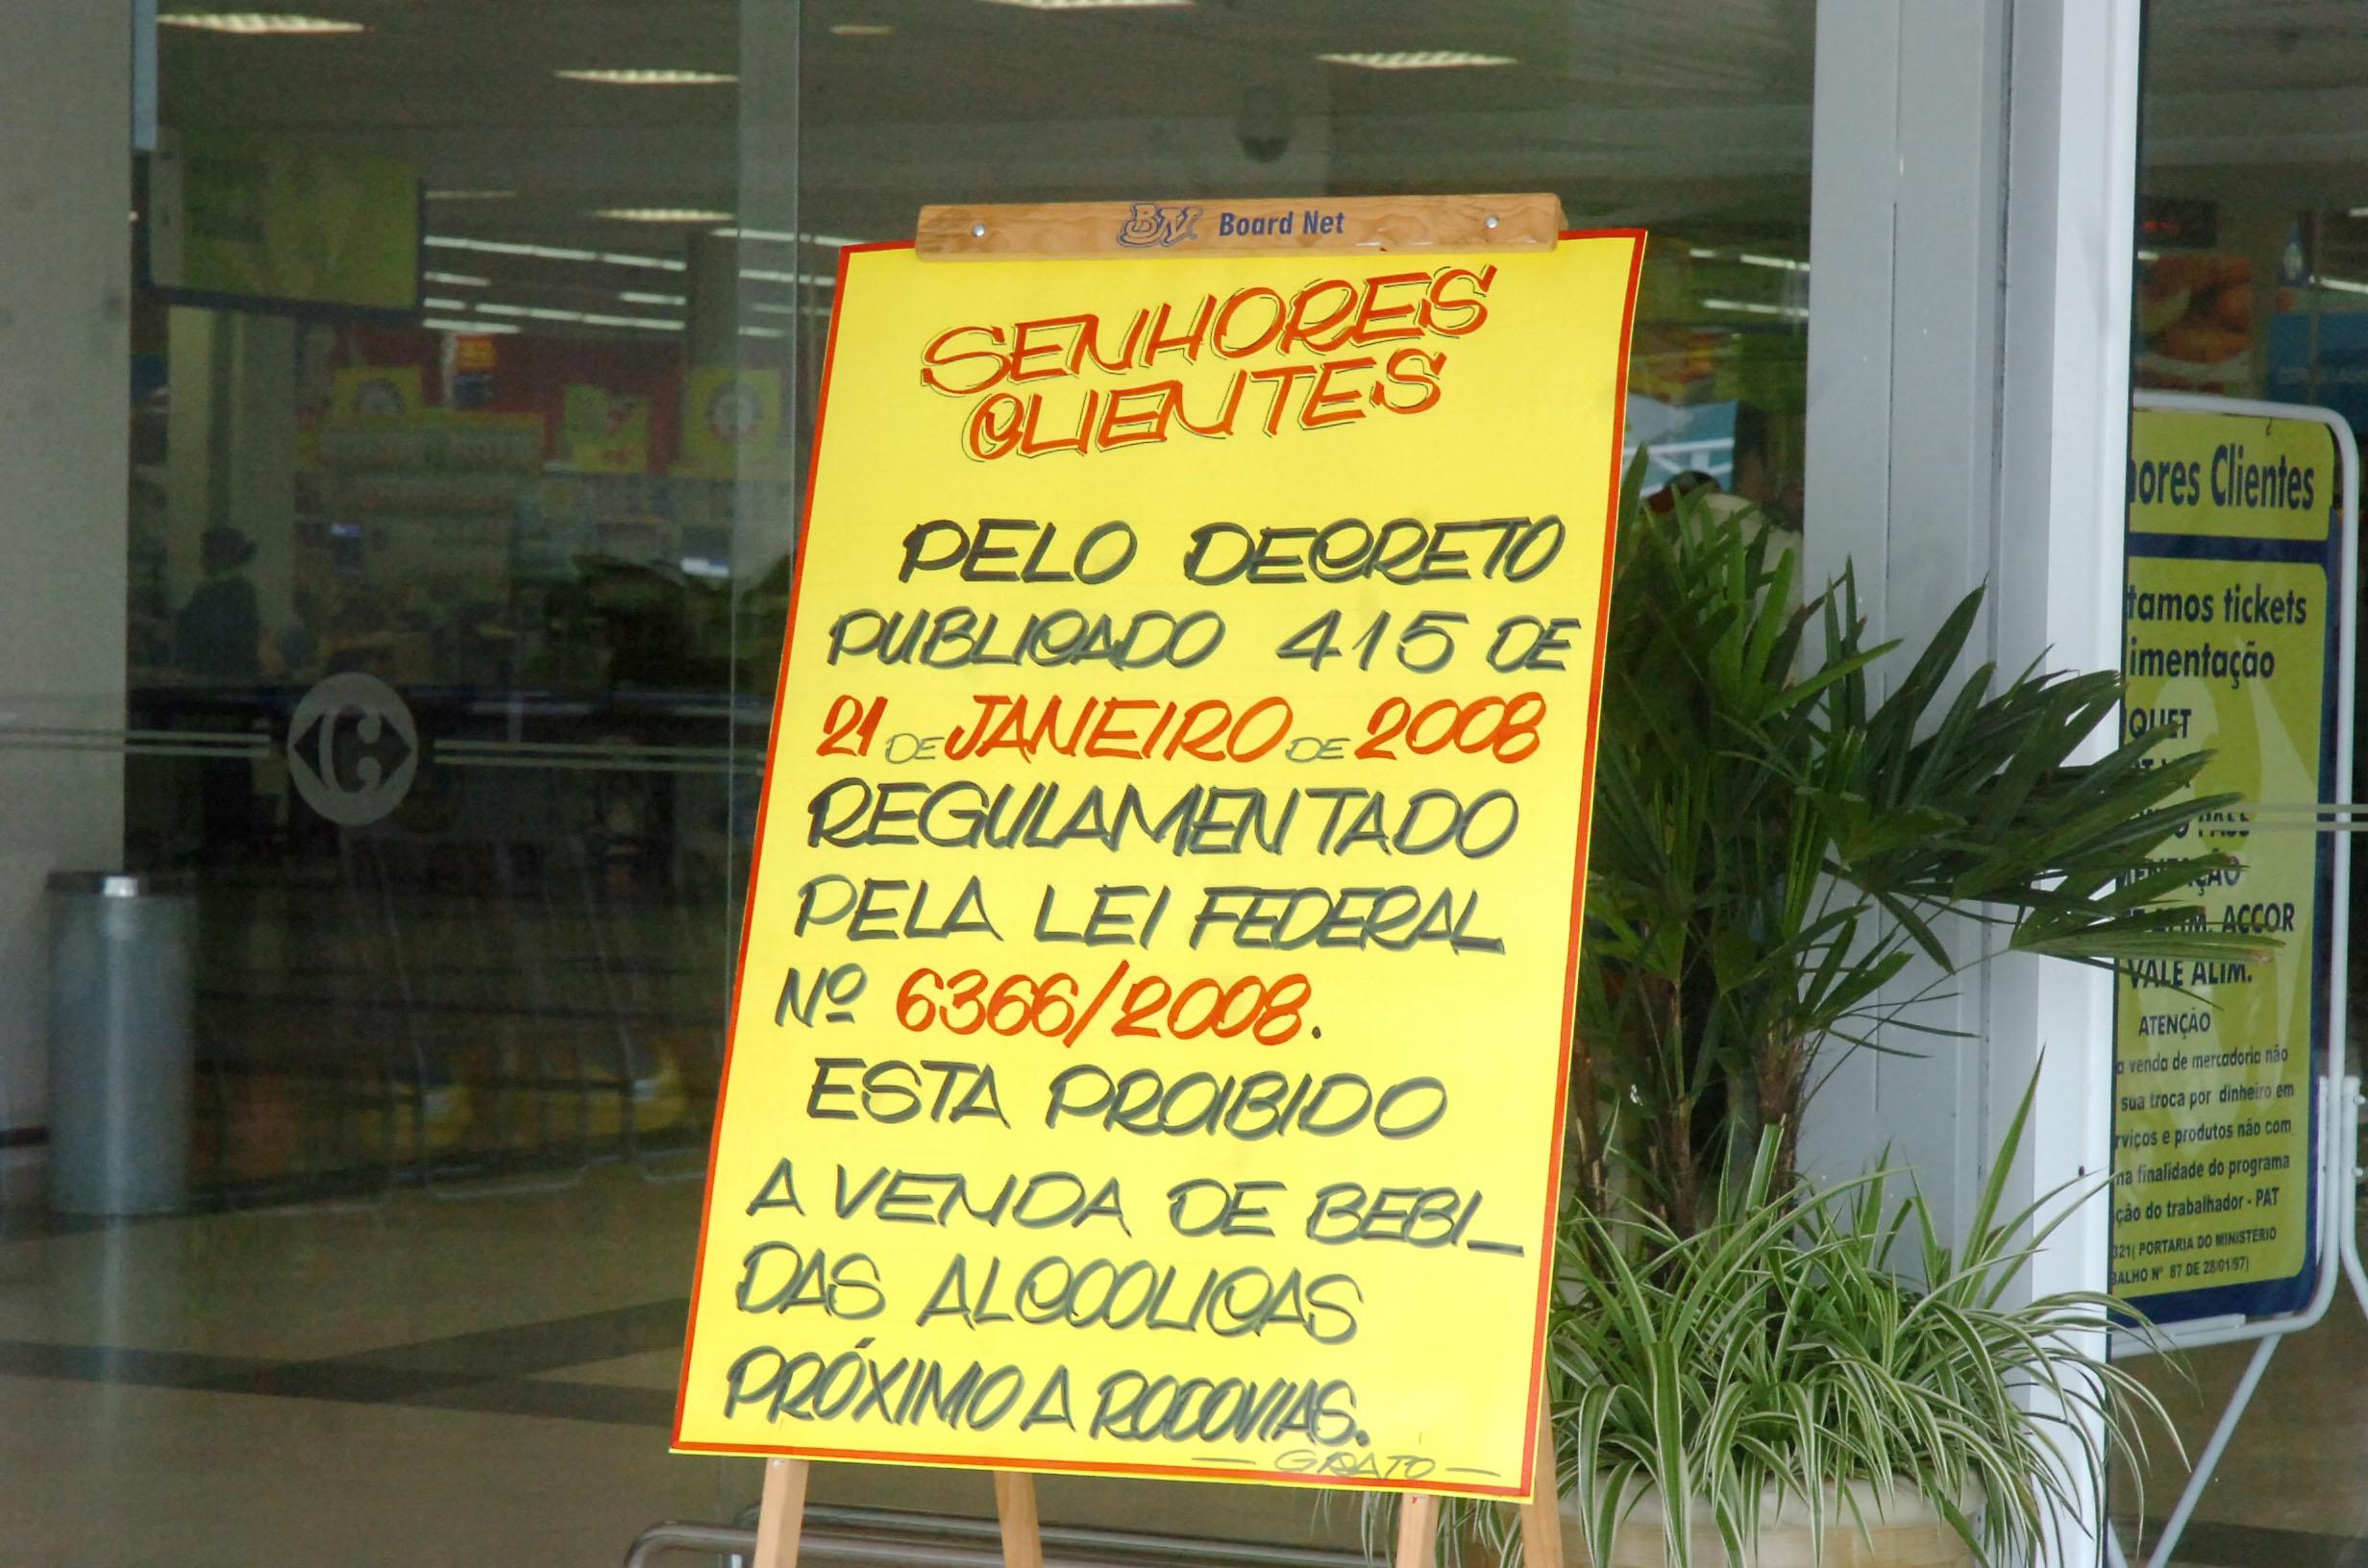 BN Board Net
SENHORES
CLIENTES
PELO DECRETO
PUBLICADO 415 DE
21 DE JANEIRO DE 2008
REGULAMENTADO
PELA LEI FEDERAL
Nº 6366/2008.
ESTA PROIBIDO
A VENDA DE BEBI_
DAS ALCOOLICAS
PRÓXIMO A RODOVIAS.
— GRATO —
ores Clientes
tamos tickets
imentação
QUET
PASS
ACCOR
VALE ALIM.
ATENÇÃO
a venda de mercadoria não
sua troca por dinheiro em
rviços e produtos não com
na finalidade do programa
ção do trabalhador - PAT
321( PORTARIA DO MINISTERIO
BALHO Nº 87 DE 28/01/97)